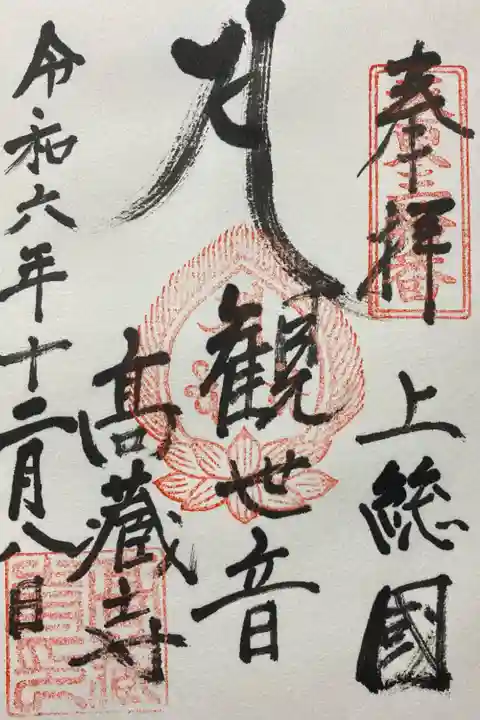 奉拝
上総國
観世音
高蔵寺
令和六年十二月八日